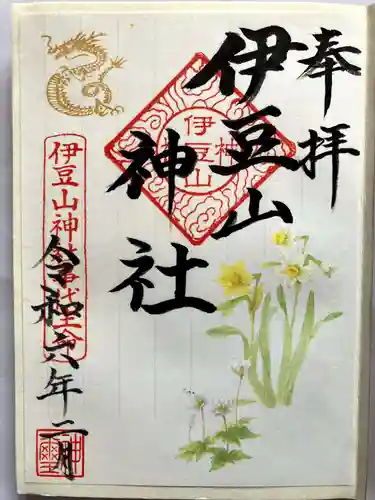 奉拝
伊豆山
神社
伊豆山
神社
伊豆山神社
令和六年二月